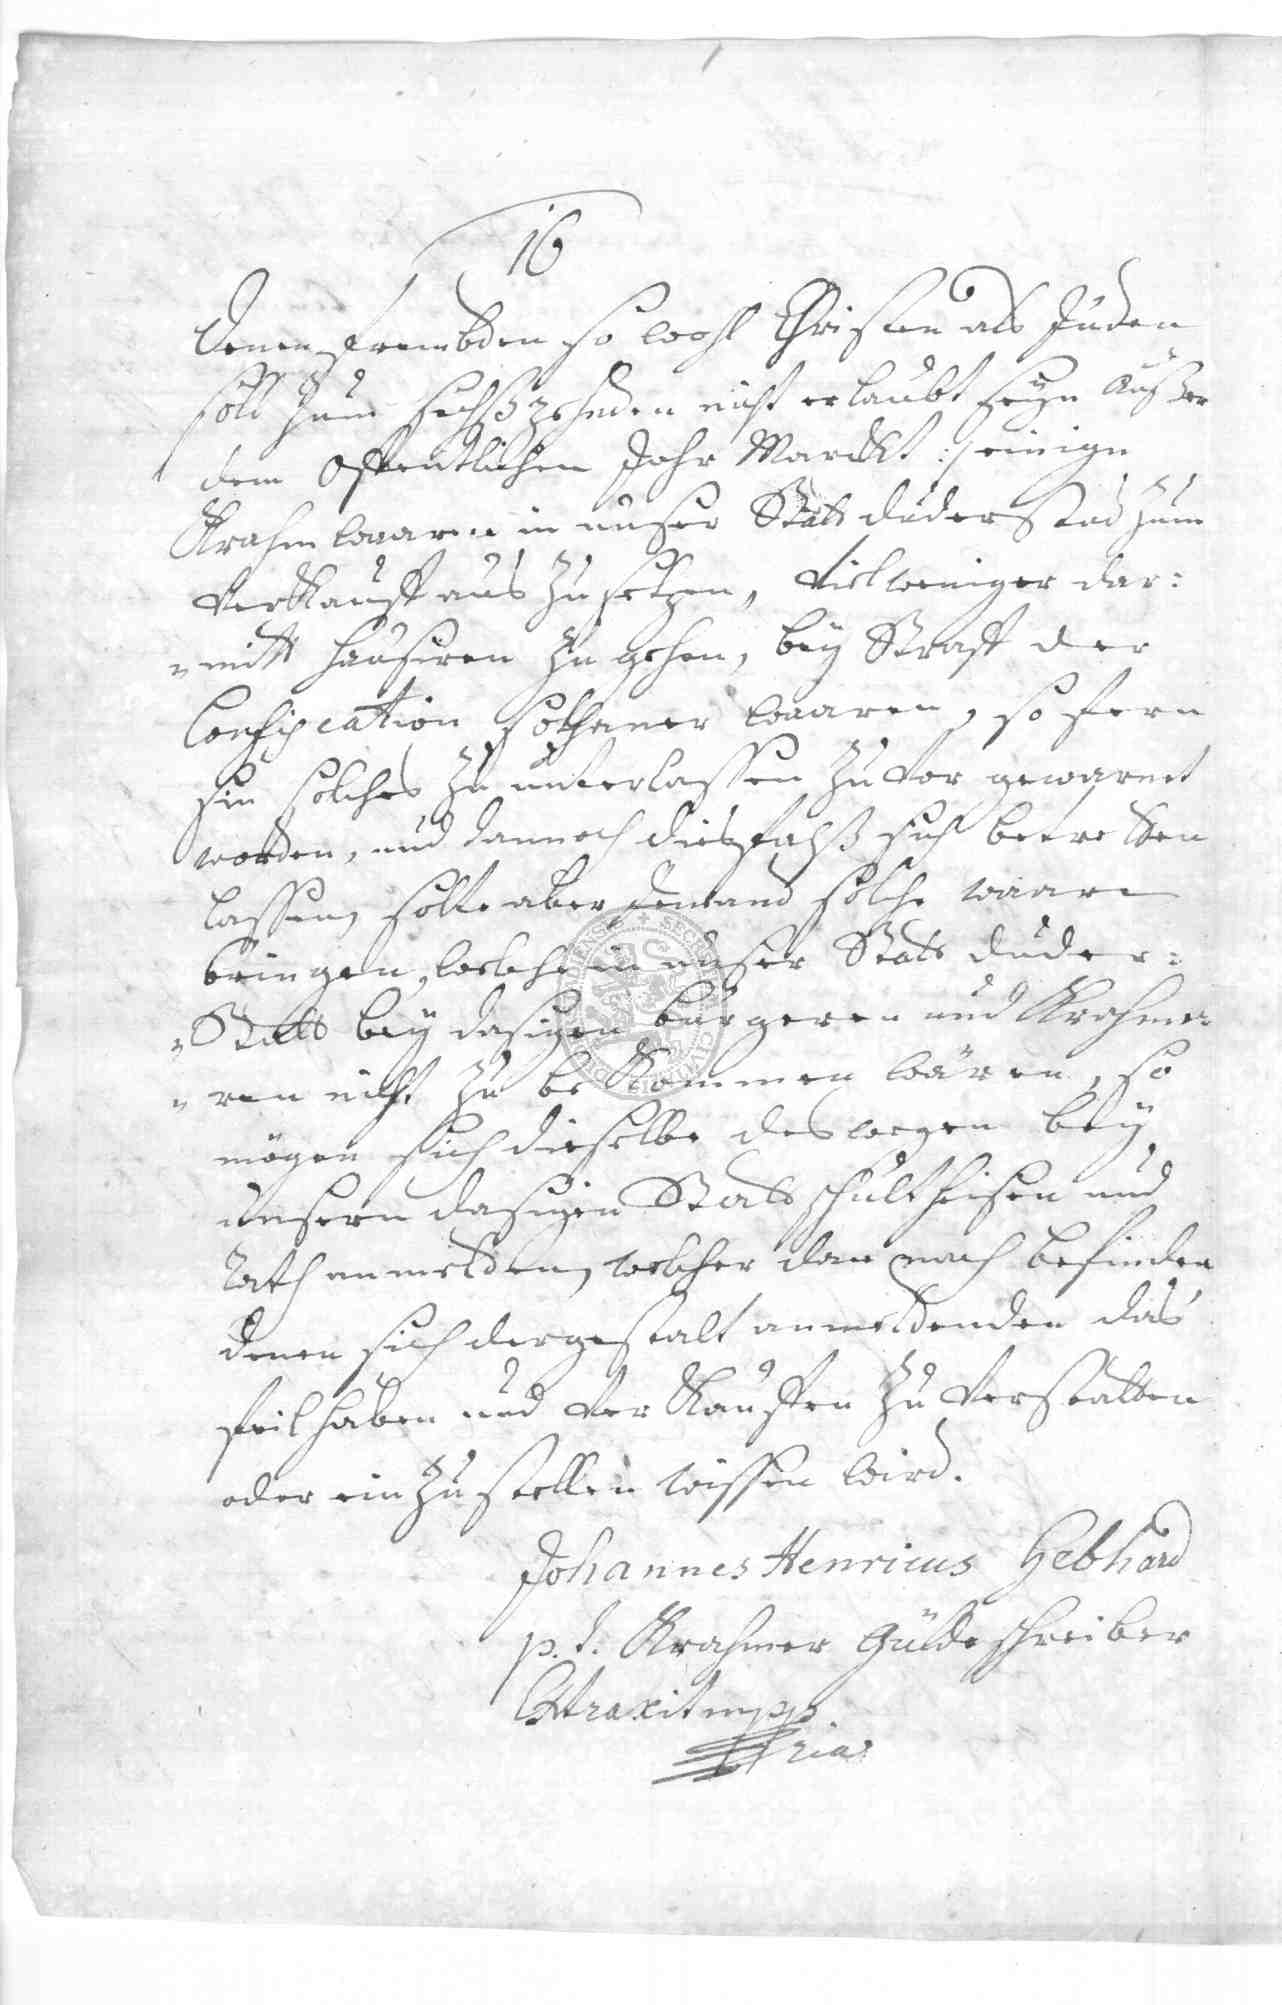 16
Denen frembden so wohl Christen als Juden
soll zum sechßzehnden nicht erlaubt seyn ausser
dem offentlichen Jahr Marckt :/ einige
Krahm waaren in unser Statt Duderstad zum
verkauff aus zu setzen, viel weniger dar:
mitt hausiren zu gehen, bey Straff der
Confiscation sothaner waaren, so fern
sie solches zu unterlassen zu vor gewarnet
worden, und dannoch diesfalß sich betretten
lassen, solte aber jemand solche waare
bringen, welche in unser Statt Duder:
Statt bey dasigen burgeren und Krahme
ren nicht zu bekommen wären, so
mögen sich dieselbe deswegen bey
unsern dasigen Statts schultheisen und
Rath anmelden, welcher dan nach befinden
denen sich dergestalt anmeldenden das
feil haben und verkauffen zu verstatten
oder ein zu stellen wissen wird.
Johannes Henricus Gebhard
p. t. Krahmer Güldeschreiber
Extraxit mpp
ria